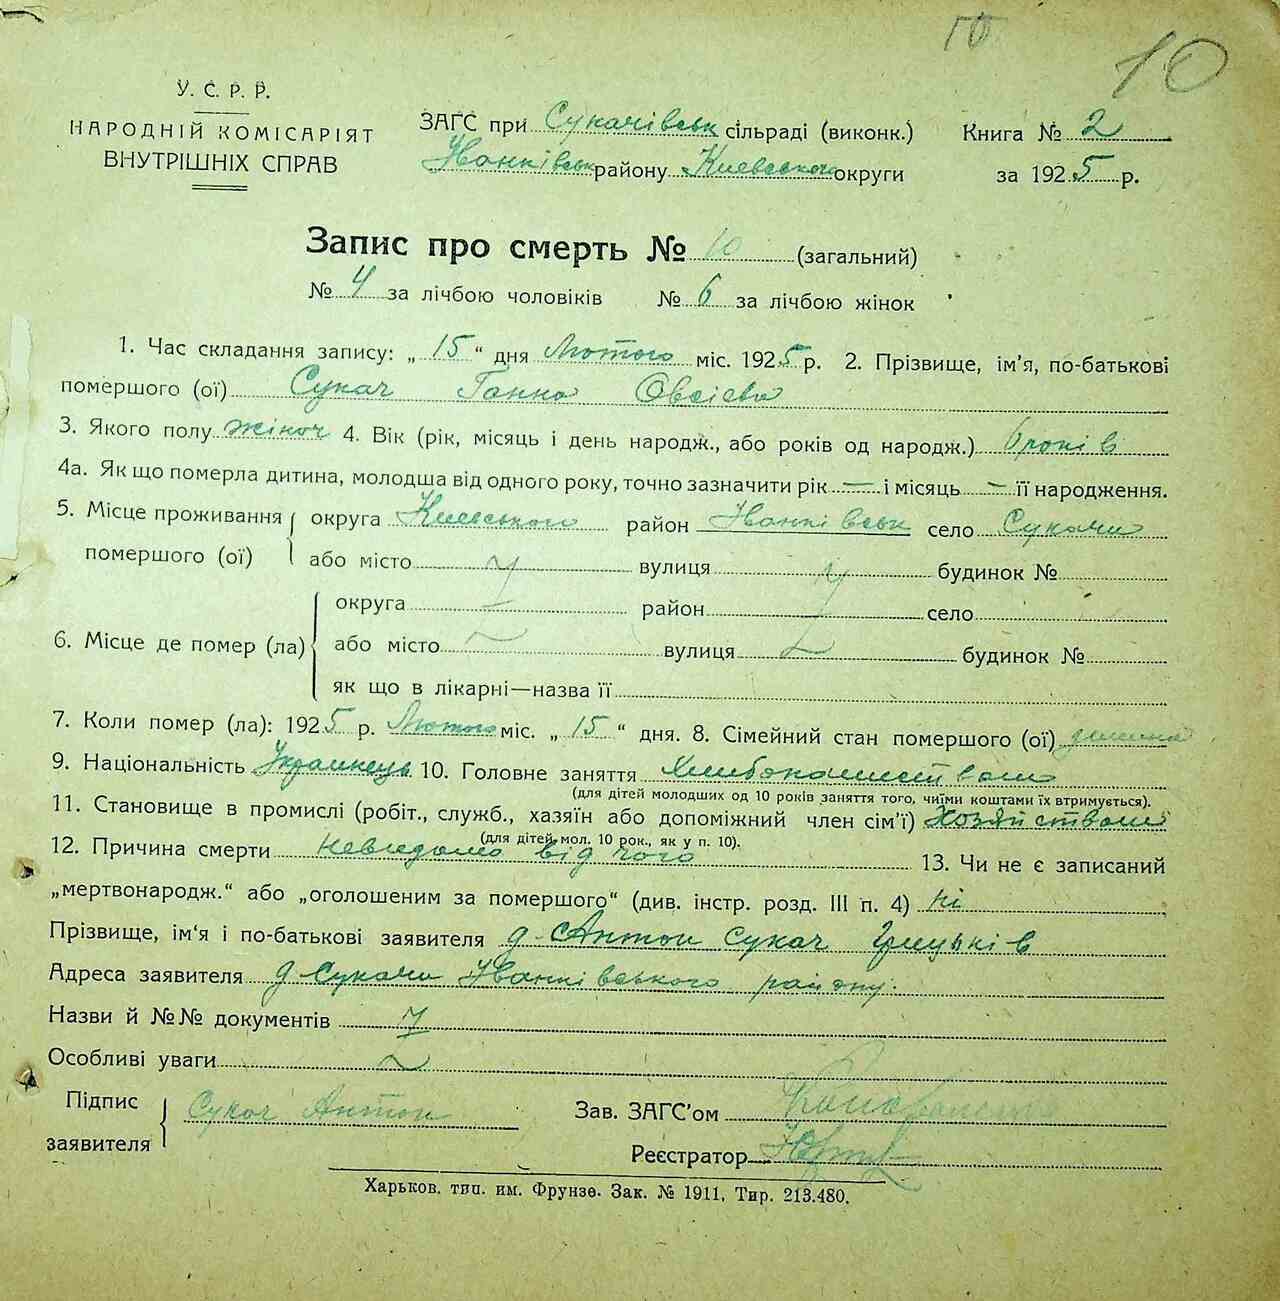 10
У. С. Р. Р.
НАРОДНІЙ КОМІСАРІЯТ
ВНУТРІШНІХ СПРАВ
ЗАГС при Сукачівськ сільраді (виконк.) Книга № 2
Іванківськ району Киевського округи за 1925 р.
Запис про смерть № 10 (загальний)
№ 4 за лічбою чоловіків № 6 за лічбою жінок
1. Час складання запису: „ 15 “ дня Лютого міс. 1925 р. 2. Прізвище, ім’я, по-батькові
помершого (ої) Сукач Ганна Овсієва
3. Якого полу жіноч 4. Вік (рік, місяць і день народж., або років од народж.) 6 років
4а. Як що померла дитина, молодша від одного року, точно зазначити рік — і місяць — її народження.
5. Місце проживання помершого (ої) округа Киевського район Іванківськ село Сукачи
або місто вулиця будинок №
6. Місце де помер (ла) округа район село
або місто вулиця будинок №
як що в лікарні—назва її
7. Коли помер (ла): 1925 р. Лютого міс. „ 15 “ дня. 8. Сімейний стан помершого (ої)
9. Національність Украинець 10. Головне заняття
(для дітей молодших од 10 років заняття того, чиїми коштами їх втримується).
11. Становище в промислі (робіт., служб., хазяїн або допоміжний член сім’ї) Хозяйством
(для дітей мол. 10 рок., як у п. 10).
12. Причина смерти невидомо від чого 13. Чи не є записаний
„мертвонародж.“ або „оголошеним за померш​ого“ (див. інстр. розд. III п. 4) ні
Прізвище, ім‘я і по-батькові заявителя д. Антон Сукач Грицьків
Адреса заявителя д. Сукачи Іванківського району.
Назви й №№ документів
Особливі уваги
Підпис заявителя Сукач Антон Зав. ЗАГС’ом
Реєстратор
Харьков, тип. им. Фрунзе. Зак. № 1911, Тир. 213.480.